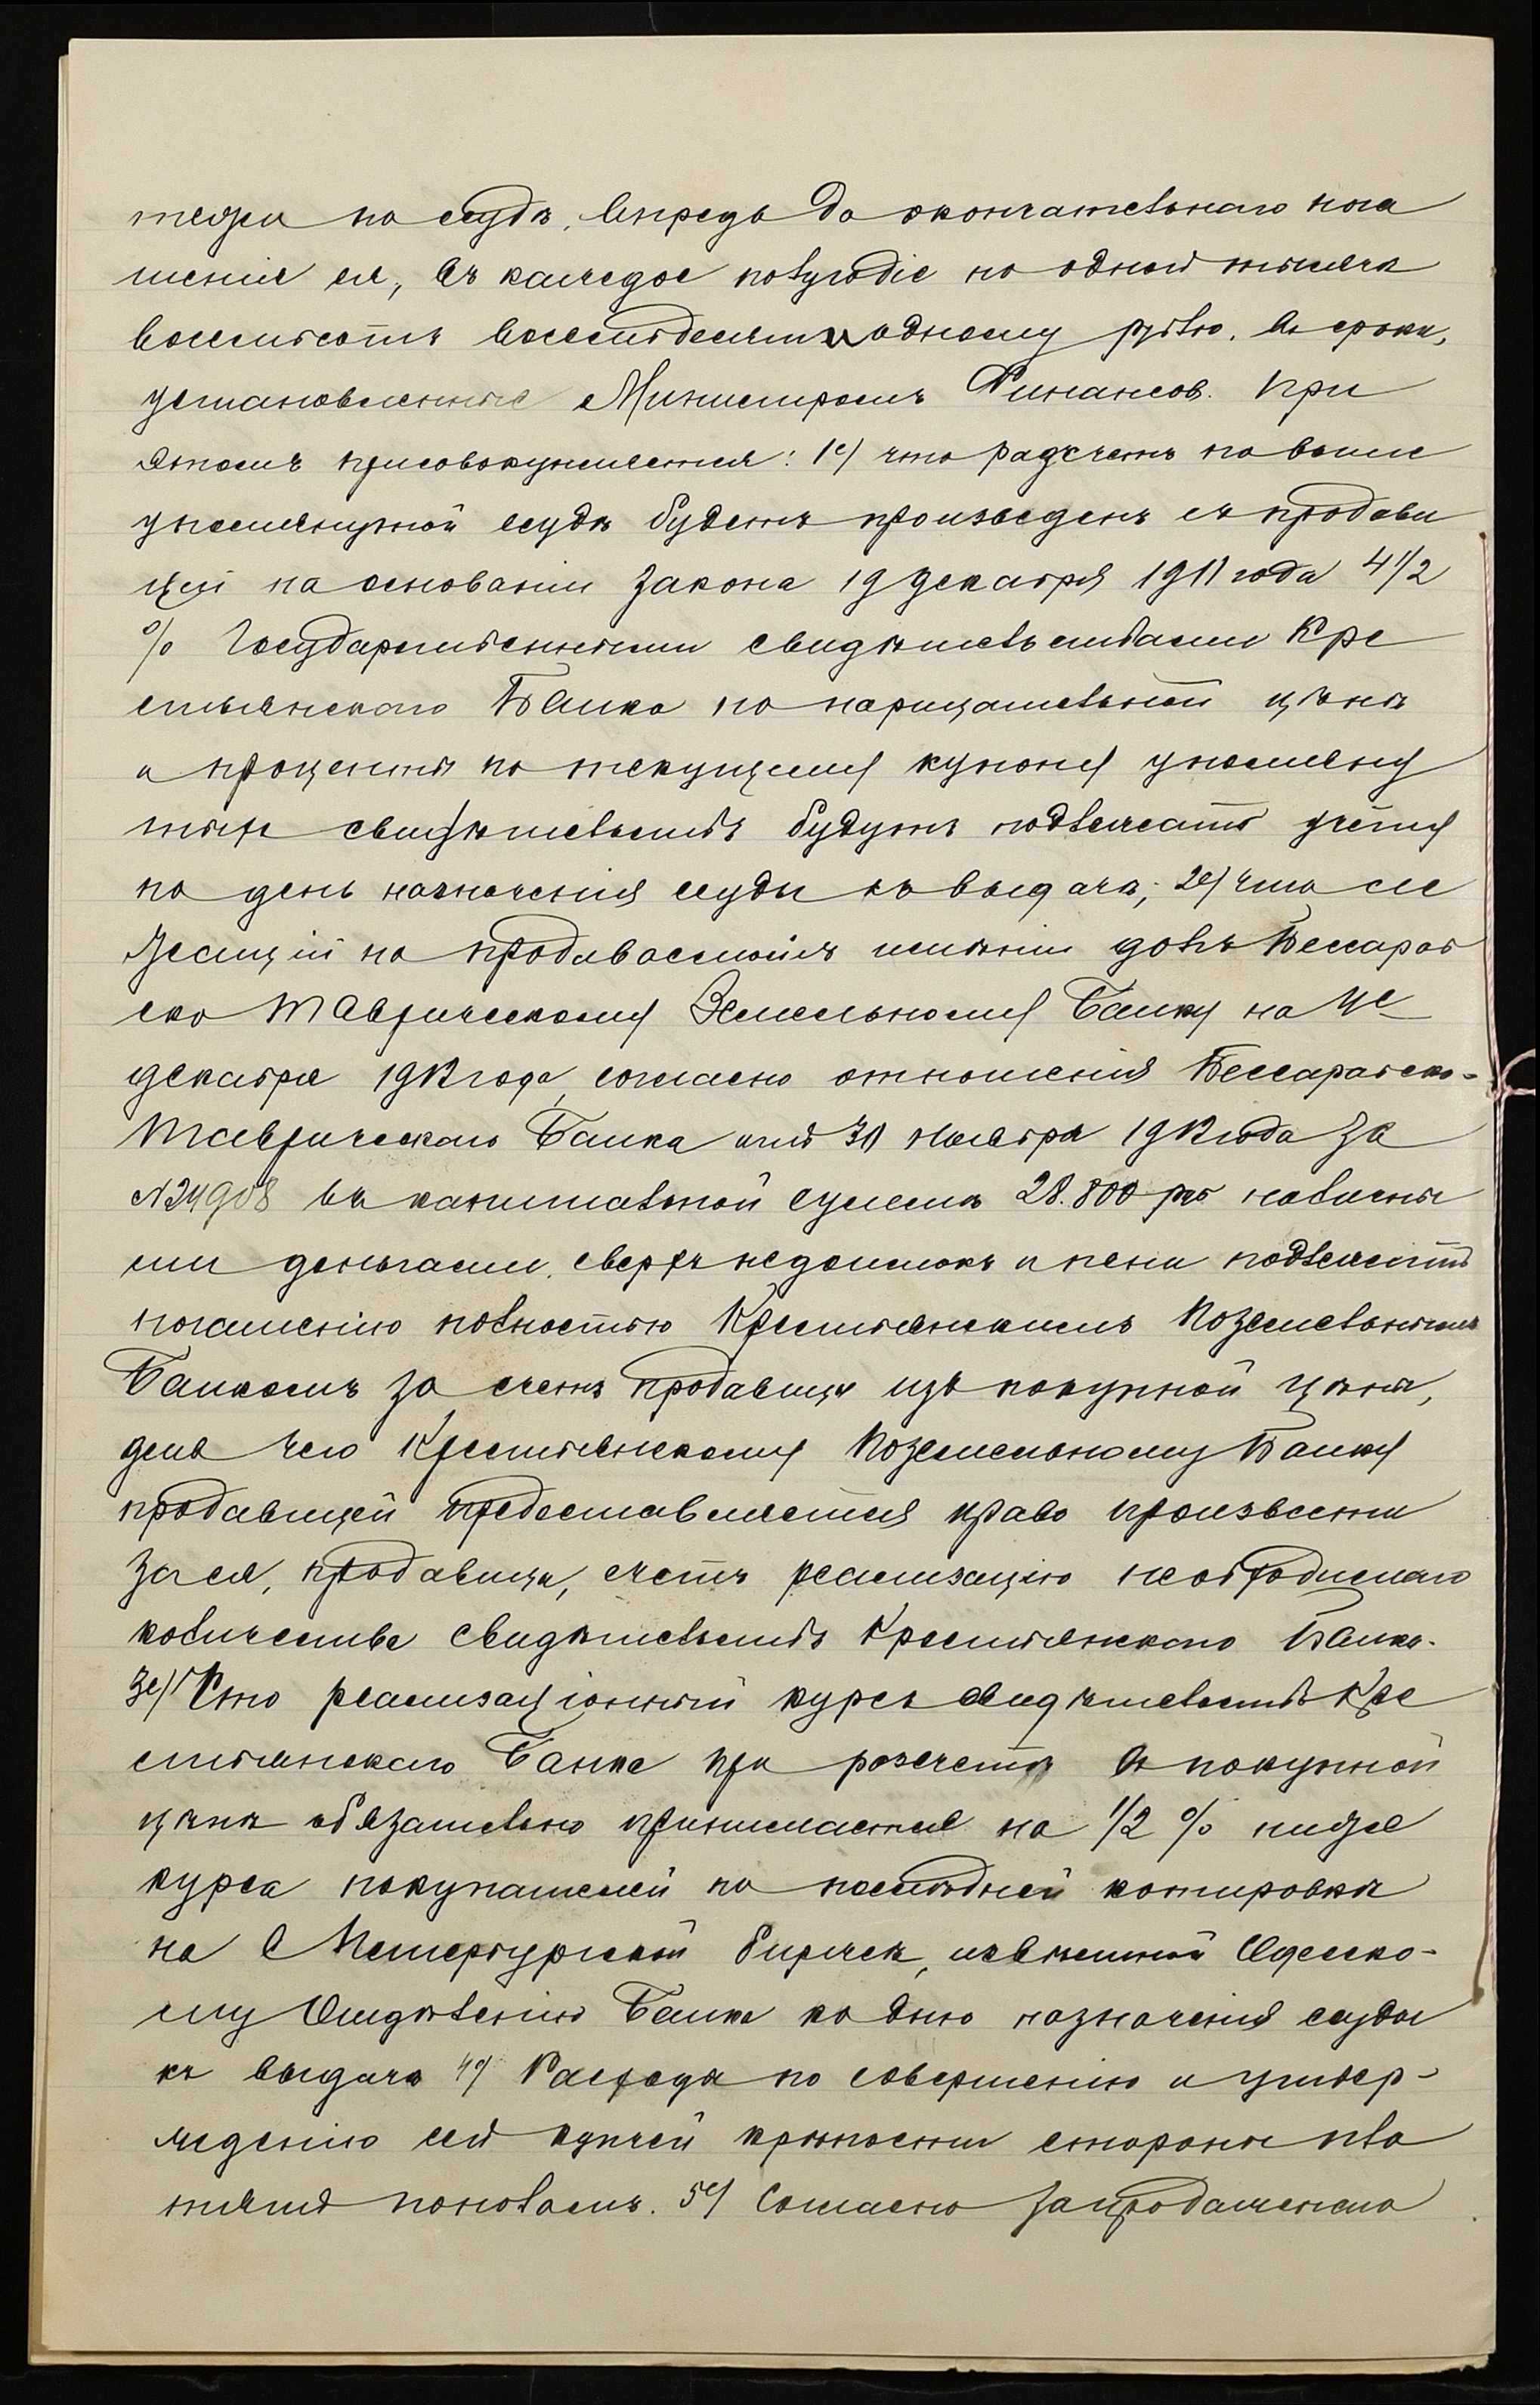 тежи по ссудѣ, впредь до окончательнаго пога
шенія ея, въ каждое полугодіе по одной тысячѣ
восемьсотъ восемьдесятъ одному рублю, въ сроки,
установленные Министромъ Финансов. При
этомъ присовокупляется: 1е) что разсчетъ по выше
упомянутой ссудѣ будетъ произведенъ съ продави
цей на основаніи закона 19 декабря 1911 года 4 1/2
% Государственными свидѣтельствами Кре
стьянскаго Банка по нарицательной цѣнѣ
и проценты по текущему купону упомяну
тыхъ свидѣтельствъ будутъ подлежать учету
по день назначенія ссуды къ выдачѣ; 2е) что ле
жащій на продаваемомъ имѣніи долгъ Бессараб
ско Таврическому Земельному Банку на 1е
декабря 1912 года, согласно отношенія Бессарабско-
Таврическаго Банка отъ 30 Ноября 1912 года за
№ 24908 въ капитальной суммѣ 28.800 руб наличны
ми деньгами, сверхъ недоимокъ и пени подлежитъ
погашенію полностью Крестьянскимъ Поземельнымъ
Банкомъ за счетъ продавицы изъ покупной цѣны,
для чего Крестьянскому Поземельному Банку
продавицей предоставляется право произвести
за ея, продавицы, счетъ реализацію необходимаго
количества свидѣтельствъ Крестьянскаго Банка.
3е) Что реализаціонный курсъ свидѣтельствъ Кре
стьянскаго Банка при разсчетѣ въ покупной
цѣнѣ обязательно принимается на 1/2 % ниже
курса покупателей по послѣдней котировкѣ
на С Петербургской биржѣ, извѣстной Одесско-
му Отдѣленію Банка ко дню назначенія ссуды
къ выдачѣ 4е) Расходы по совершенію и утвер-
жденію сей купчей крѣпости стороны пла
тятъ пополамъ. 5е) Согласно запродажного